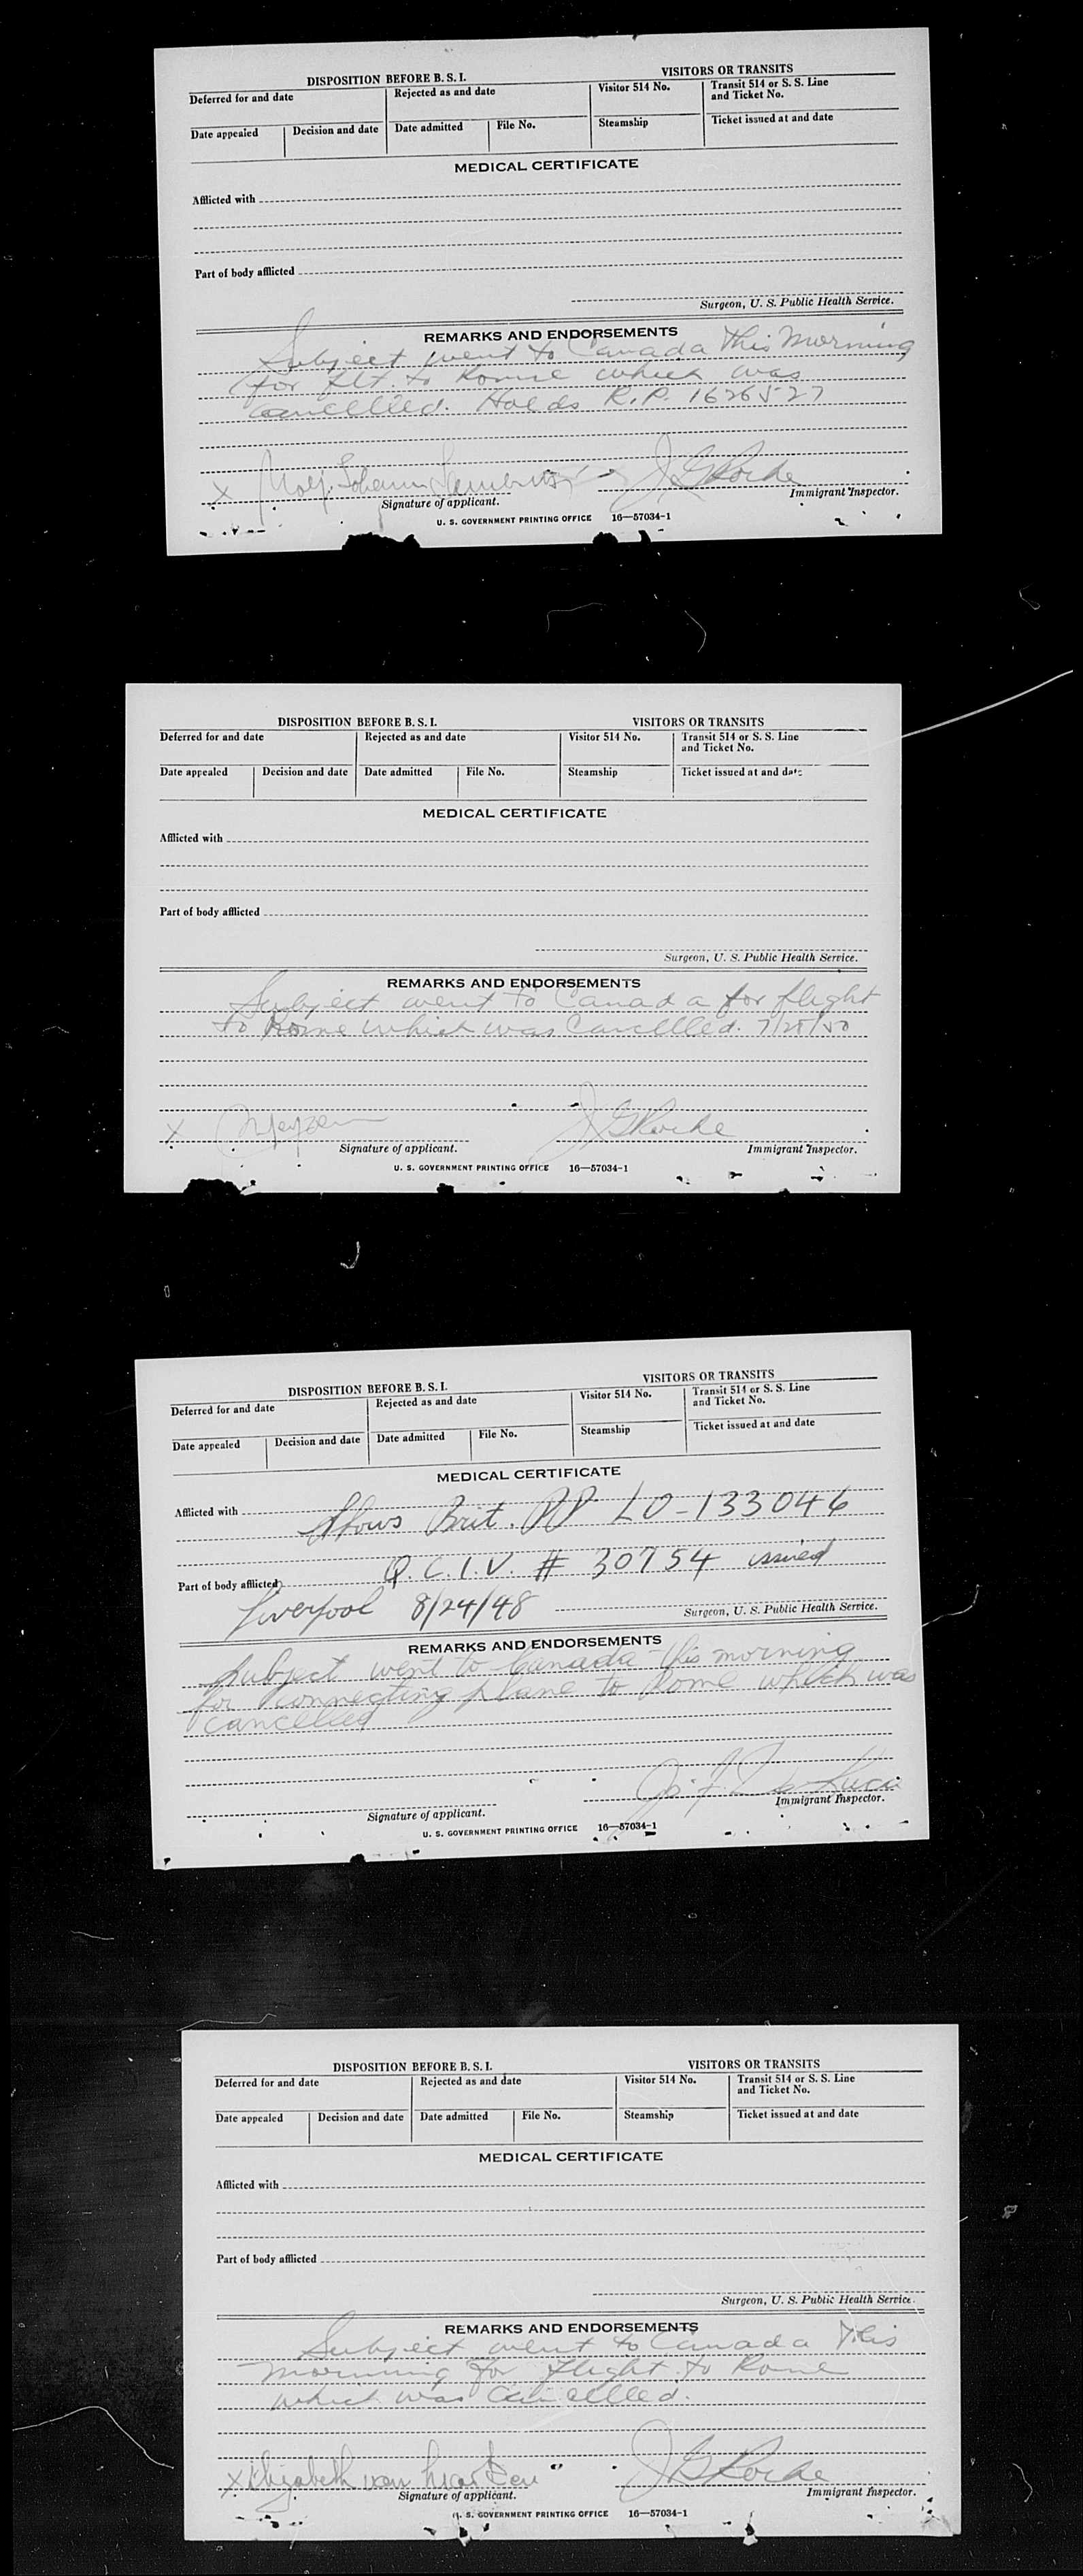 DISPOSITION BEFORE B. S. I. VISITORS OR TRANSITS
Deferred for and date Rejected as and date Visitor 514 No. Transit 514 or S. S. Line
and Ticket No.
Date appealed Decision and date Date admitted File No. Steamship Ticket issued at and date
MEDICAL CERTIFICATE
Afflicted with
Part of body afflicted
Surgeon, U. S. Public Health Service.
REMARKS AND ENDORSEMENTS
Subject went to Canada this morning
for flt. to Rome which was
cancellled. Holds R.P. 1626527
X
J G Roche
Signature of applicant. Immigrant Inspector.
U. S. GOVERNMENT PRINTING OFFICE 16—57034-1
DISPOSITION BEFORE B. S. I. VISITORS OR TRANSITS
Deferred for and date Rejected as and date Visitor 514 No. Transit 514 or S. S. Line
and Ticket No.
Date appealed Decision and date Date admitted File No. Steamship Ticket issued at and date
MEDICAL CERTIFICATE
Afflicted with
Part of body afflicted
Surgeon, U. S. Public Health Service.
REMARKS AND ENDORSEMENTS
Subject went to Canada for flight
to Rome which was Cancellled. 7/25/50
X J G Roche
Signature of applicant. Immigrant Inspector.
U. S. GOVERNMENT PRINTING OFFICE 16—57034-1
DISPOSITION BEFORE B. S. I. VISITORS OR TRANSITS
Deferred for and date Rejected as and date Visitor 514 No. Transit 514 or S. S. Line
and Ticket No.
Date appealed Decision and date Date admitted File No. Steamship Ticket issued at and date
MEDICAL CERTIFICATE
Afflicted with
Shows Brit. PP LO-133046
Part of body afflicted Q.C.I.V. # 30754 issued
Liverpool 8/24/48
Surgeon, U. S. Public Health Service.
REMARKS AND ENDORSEMENTS
Subject went to Canada this morning
for connecting plane to Rome which was
cancelled
Signature of applicant. Immigrant Inspector.
U. S. GOVERNMENT PRINTING OFFICE 16—57034-1
DISPOSITION BEFORE B. S. I. VISITORS OR TRANSITS
Deferred for and date Rejected as and date Visitor 514 No. Transit 514 or S. S. Line
and Ticket No.
Date appealed Decision and date Date admitted File No. Steamship Ticket issued at and date
MEDICAL CERTIFICATE
Afflicted with
Part of body afflicted
Surgeon, U. S. Public Health Service.
REMARKS AND ENDORSEMENTS
Subject went to Canada this
morning for flight to Rome
which was cancellled.
X Elizabeth van J G Roche
Signature of applicant. Immigrant Inspector.
U. S. GOVERNMENT PRINTING OFFICE 16—57034-1